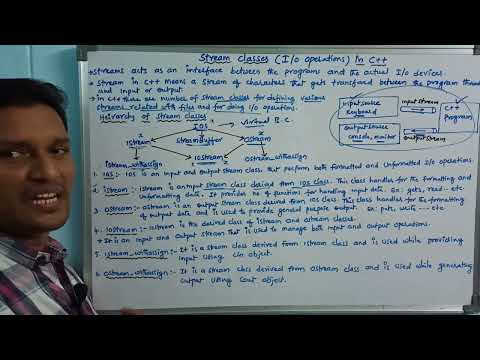 Stream classes (I/O operations) in C++
→ Streams acts as an interface between the programs and the actual I/O devices.
→ Stream in C++ means a stream of characters that gets transfered between the program thread
and input or output
→ In C++ there are number of stream classes for defining various
streams related with files and for doing I/o operations.
Heirarchy of stream classes
IOS → Virtual B.C.
istream streambuffer ostream
iostream
istream_withassign ostream_withassign
Input source
keyboard
input stream
C++
Program
output source
console, monitor
output stream
1. IOS :- IOS is an input and output stream class that perform both formatted and unformatted I/o operations.
2. istream :- istream is an input stream class derived from IOS class. This class for the formatting and
unformatting data. It provides no. of functions for handling input data. ex: gets, read.. etc.
3. ostream :- ostream is an output stream class derived from ios class. This class handles for the formatting
of output data and is used to provide general purpose output. ex: puts, write --- etc
4. iostream :- iostream is the derived class of istream and ostream classes.
→ It is an input and output stream that is used to manage both input and output operations.
5. istream_withassign :- It is a stream class derived from istream class and is used while providing
input using cin object.
6. ostream_withassign :- It is a stream class derived from ostream class and is used while generating
output using cout object.